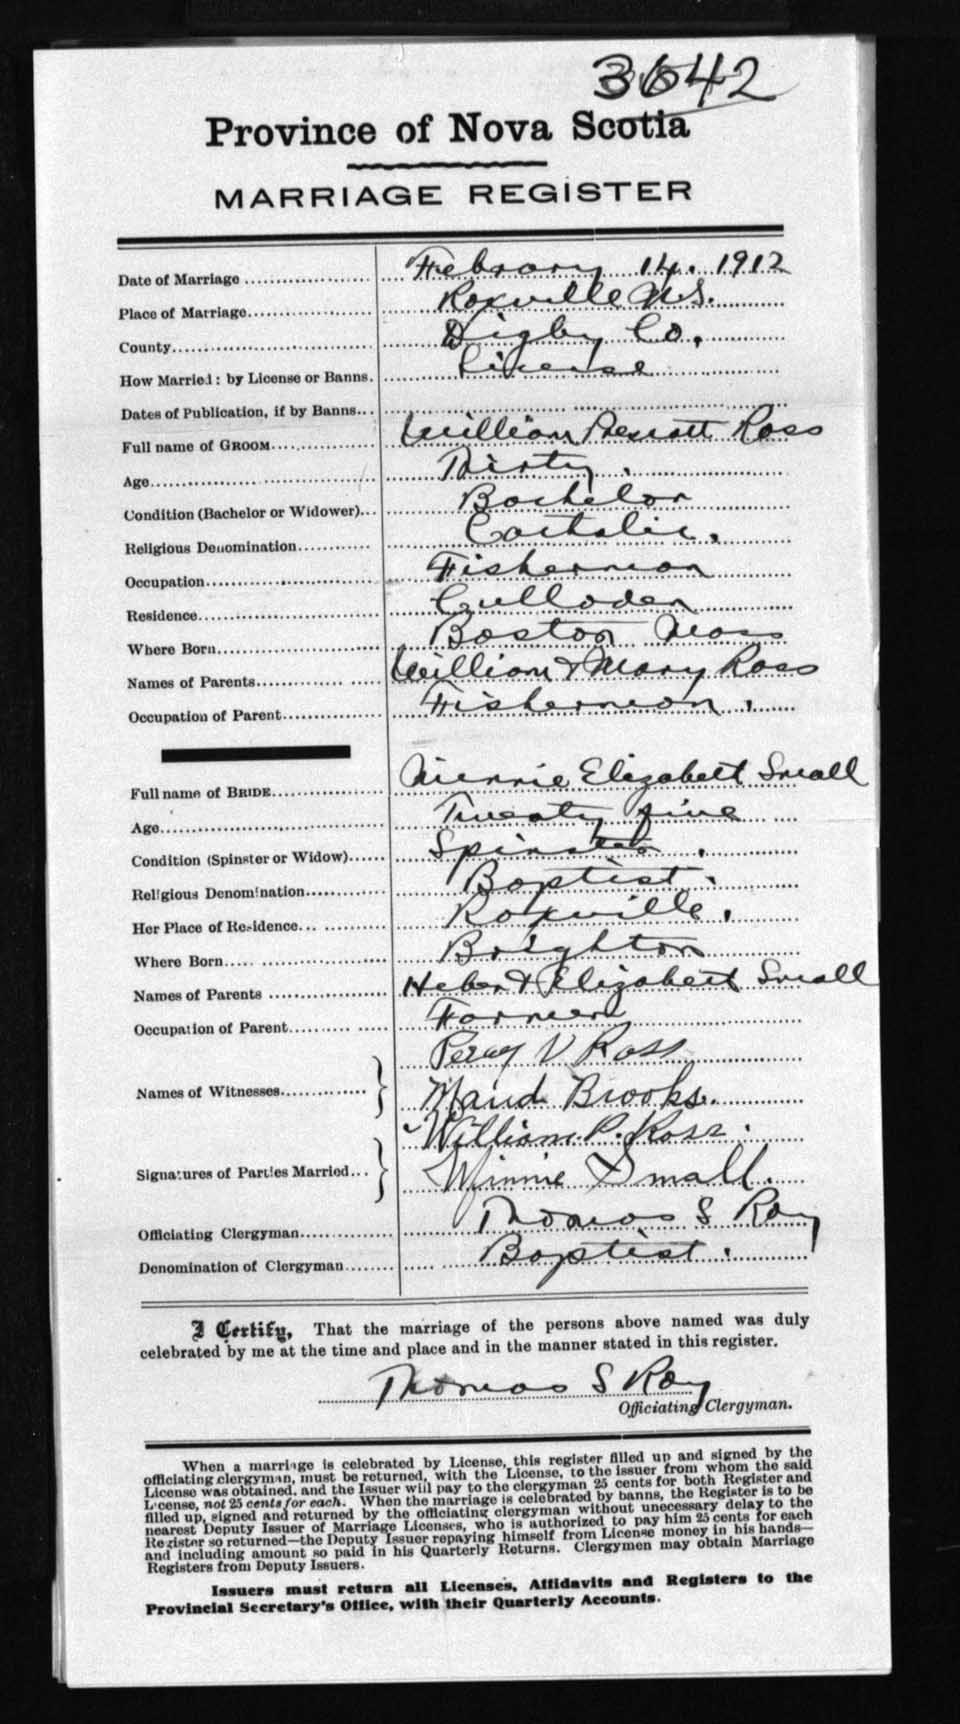 3642
Province of Nova Scotia
MARRIAGE REGISTER
Date of Marriage February 14. 1912
Place of Marriage Roxville N.S.
County Digby Co.
How Married: by License or Banns. License
Dates of Publication, if by Banns
Full name of GROOM William Prescott Ross
Age Thirty.
Condition (Bachelor or Widower) Bachelor
Religious Denomination Catholic.
Occupation Fisherman
Residence Culloden
Where Born Boston Mass
Names of Parents William & Mary Ross
Occupation of Parent Fisherman.
Full name of BRIDE Minnie Elizabeth Small
Age Twenty five
Condition (Spinster or Widow) Spinster.
Religious Denomination Baptist.
Her Place of Residence Roxville.
Where Born Brighton
Names of Parents Heber & Elizabeth Small
Occupation of Parent Farmer
Percy V Ross
Names of Witnesses Maud Brooks.
William. P. Ross.
Signatures of Parties Married Winnie Small.
Officiating Clergyman Thomas S Roy
Denomination of Clergyman Baptist.
I Certify, That the marriage of the persons above named was duly
celebrated by me at the time and place and in the manner stated in this register.
Thomas S Roy
Officiating Clergyman.
When a marriage is celebrated by License, this register filled up and signed by the
officiating clergyman, must be returned, with the License, to the issuer from whom the said
License was obtained, and the Issuer will pay to the clergyman 25 cents for both Register and
License, not 25 cents for each. When the marriage is celebrated by banns, the Register is to be
filled up, signed and returned by the officiating clergyman without unnecessary delay to the
nearest Deputy Issuer of Marriage Licenses, who is authorized to pay him 25 cents for each
Register so returned—the Deputy Issuer repaying himself from License money in his hands—
and including amount so paid in his Quarterly Returns. Clergymen may obtain Marriage
Registers from Deputy Issuers.
Issuers must return all Licenses, Affidavits and Registers to the
Provincial Secretary's Office, with their Quarterly Accounts.